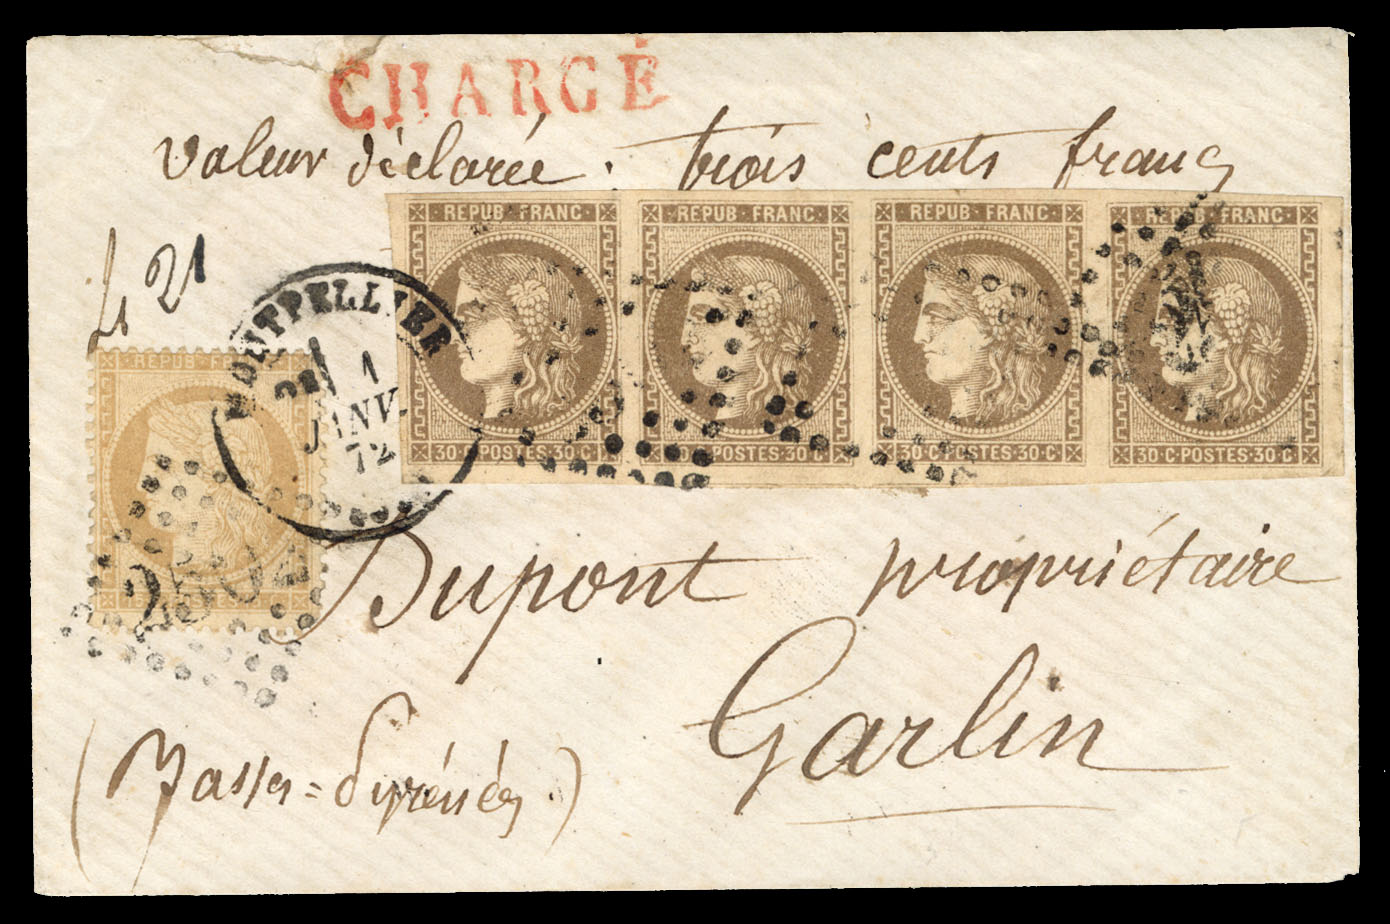 CHARGÉ
valeur déclarée. trois cents francs
REPUB FRANC REPUB FRANC REPUB FRANC REPUB FRANC
21
MONTPELLIER
1
JANV.
72
REPUB FRANC
30 C POSTES 30 C 30 C POSTES 30 C 30 C POSTES 30 C 30 C POSTES 30 C
2502
Dupont propriétaire
Garlin
(Basses=Pyrénées.)